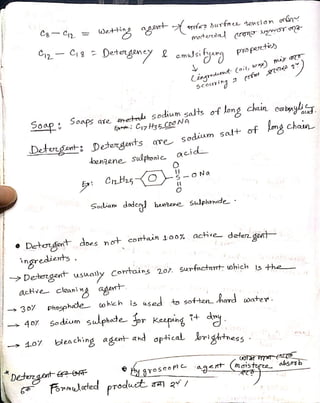 C8 - C12 = Wetting agent → surface tension
material
C12 - C18 = Detergency & emulsifying properties
(ingredient (oil, wax) mix
occurring
Soap: Soaps are sodium salts of long chain carboxylic acid.
C17H35COONA
Detergent: Detergents are sodium salt of long chain
benzene sulphonic acid.
Ex: C12H25 - O - S - ONa
O
O
Sodium dodecyl benzene Sulphonate.
• Detergent does not contain 100% active detergent
ingredients.
→ Detergent usually contains 20% surfactant which is the
active cleaning agent
→ 30% phosphate which is used to soften hard water.
→ 40% Sodium sulphate for keeping it dry.
→ 10% bleaching agent and optical brightness.
Hygroscopic agent (moisture absorb
*Detergent
Formulated product